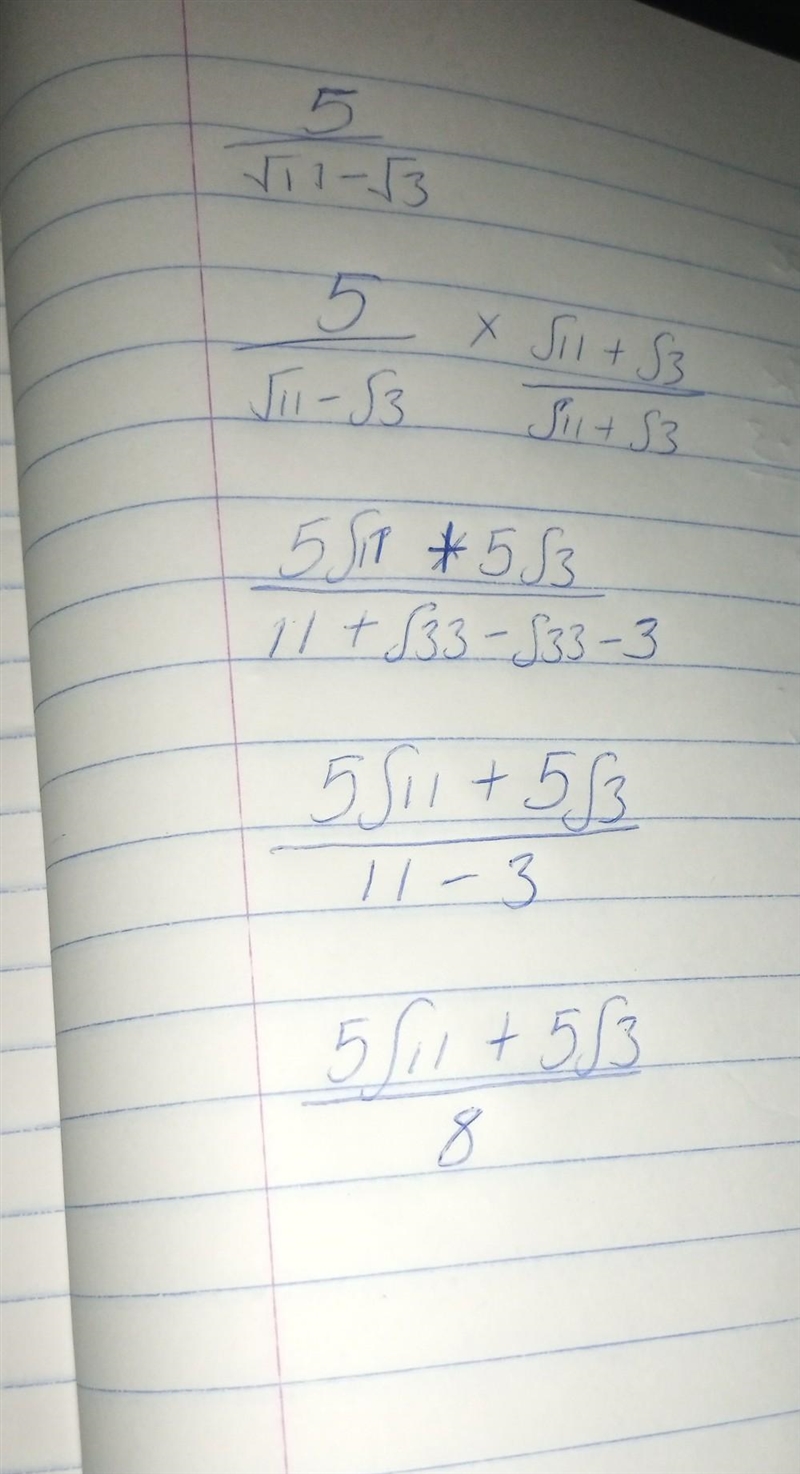 5
√11-√3
5 × √11 + √3
√11 - √3 √11 + √3
5√11 + 5√3
11 + √33 - √33 - 3
5√11 + 5√3
11 - 3
5√11 + 5√3
8